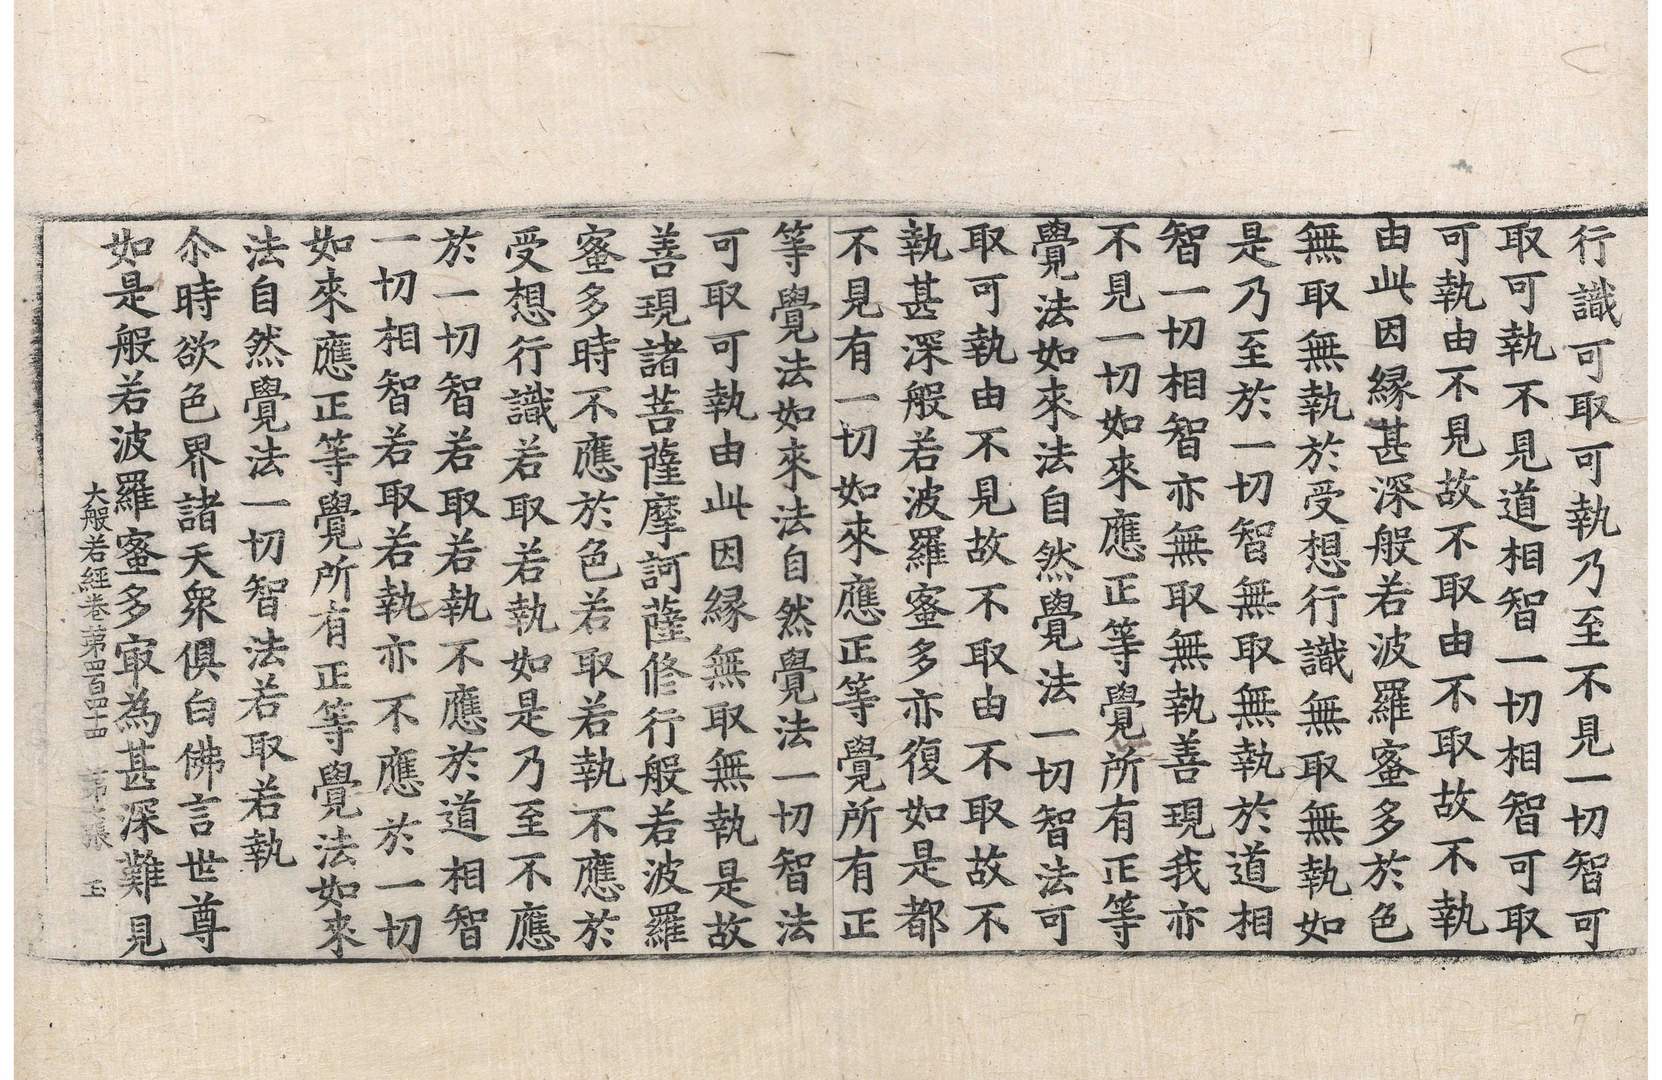 行識可取可執乃至不見一切智可
取可執不見道相智一切相智可取
可執由不見故不取由不取故不執
由此因縁甚深般若波羅蜜多於色
無取無執於受想行識無取無執如
是乃至於一切智無取無執於道相
智一切相智亦無取無執善現我亦
不見一切如來應正等覺所有正等
覺法如來法自然覺法一切智法可
取可執由不見故不取由不取故不
執甚深般若波羅蜜多亦復如是都
不見有一切如來應正等覺所有正
等覺法如來法自然覺法一切智法
可取可執由此因縁無取無執是故
善現諸菩薩摩訶薩修行般若波羅
蜜多時不應於色若取若執不應於
受想行識若取若執如是乃至不應
於一切智若取若執不應於道相智
一切相智若取若執亦不應於一切
如來應正等覺所有正等覺法如來
法自然覺法一切智法若取若執
尒時欲色界諸天衆俱白佛言世尊
如是般若波羅蜜多㝡為甚深難見
大般若經卷第四百四十四 第 張 玉